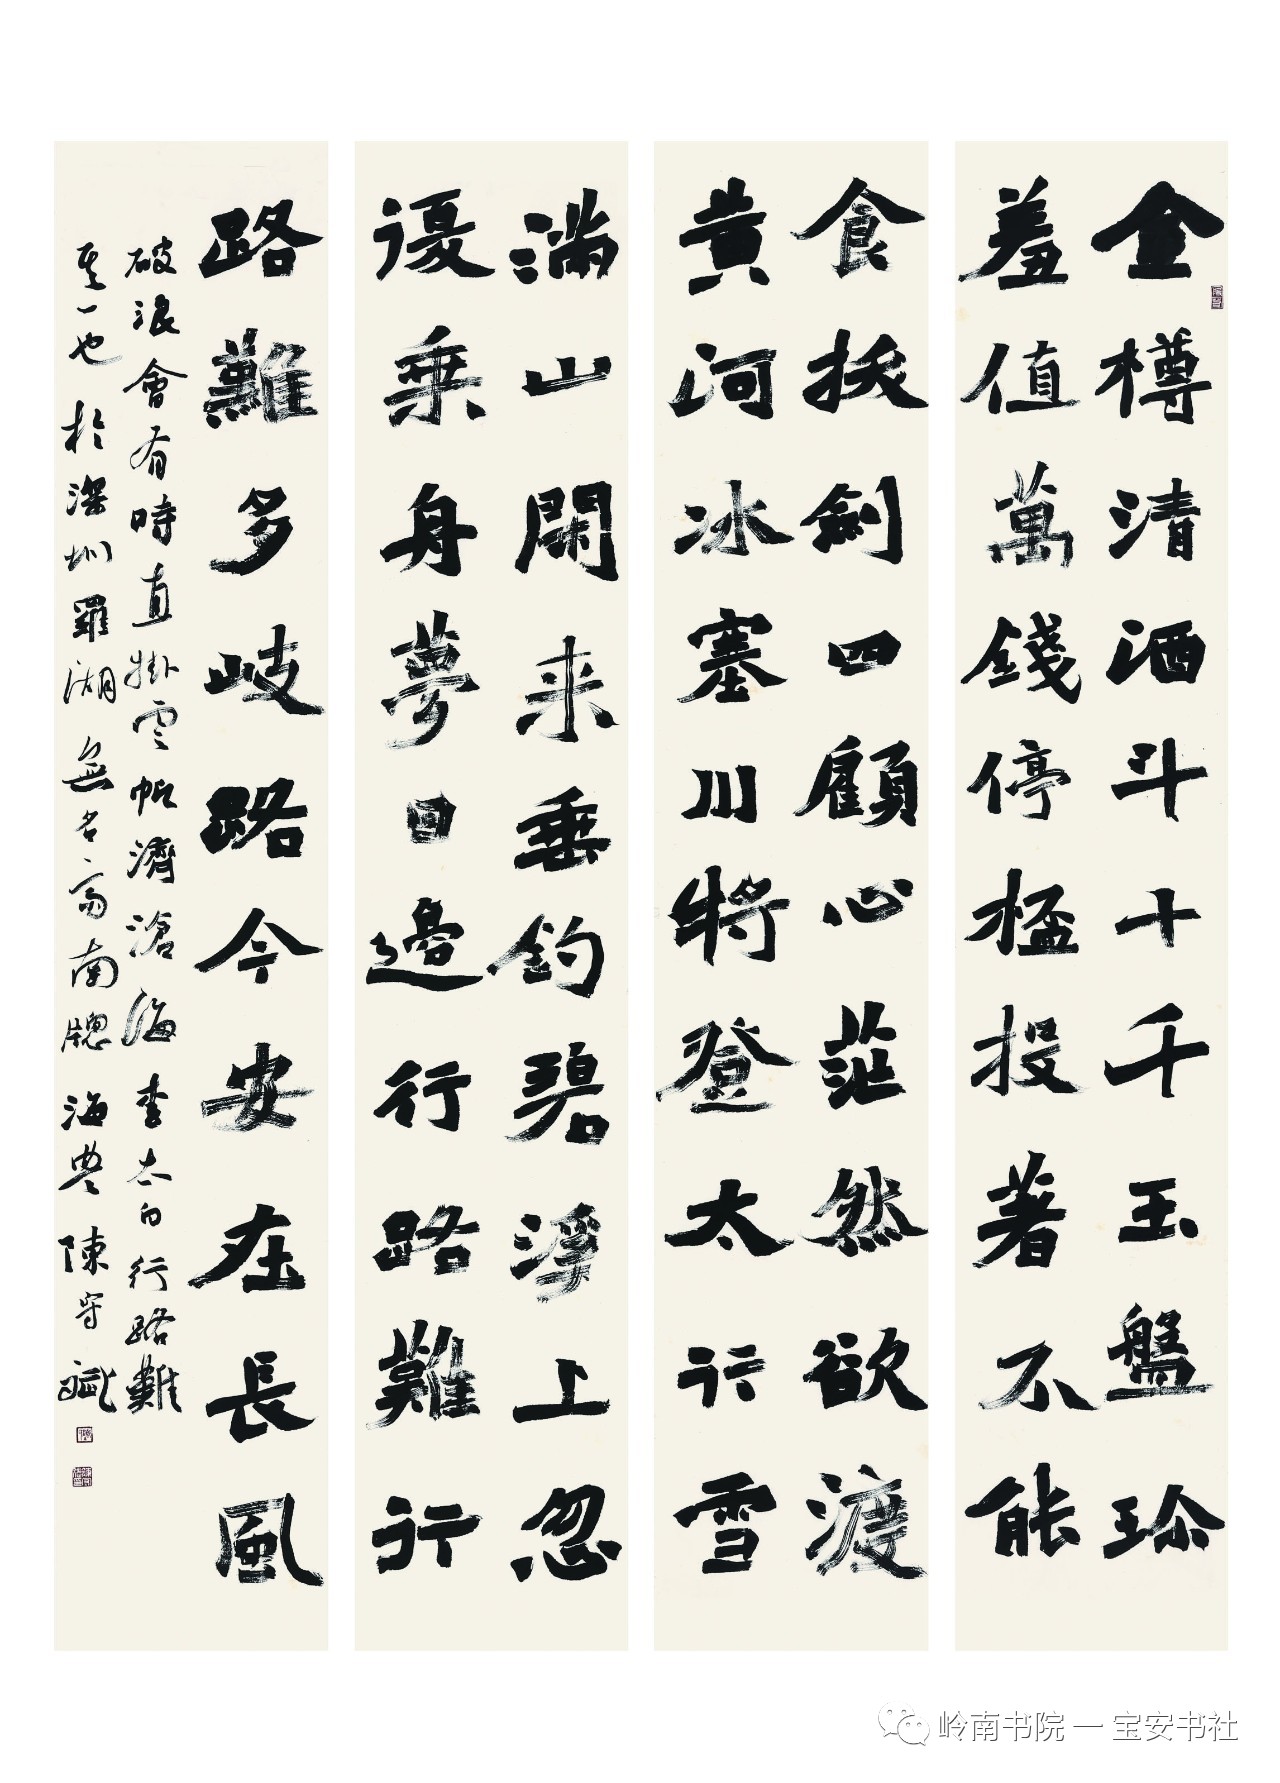 金樽清酒斗十千玉盤珍
羞值萬錢停桮投著不能
食拔劍四顧心茫然欲渡
黄河冰塞川將登太行雪
滿山閑来垂釣碧溪上忽
復乘舟夢日邊行路難行
路難多岐路今安在長風
破浪會有時直掛雲帆濟滄海李太白行路難
其一也於深圳羅湖無名齋南牕海豐陳守斌
岭南书院一宝安书社